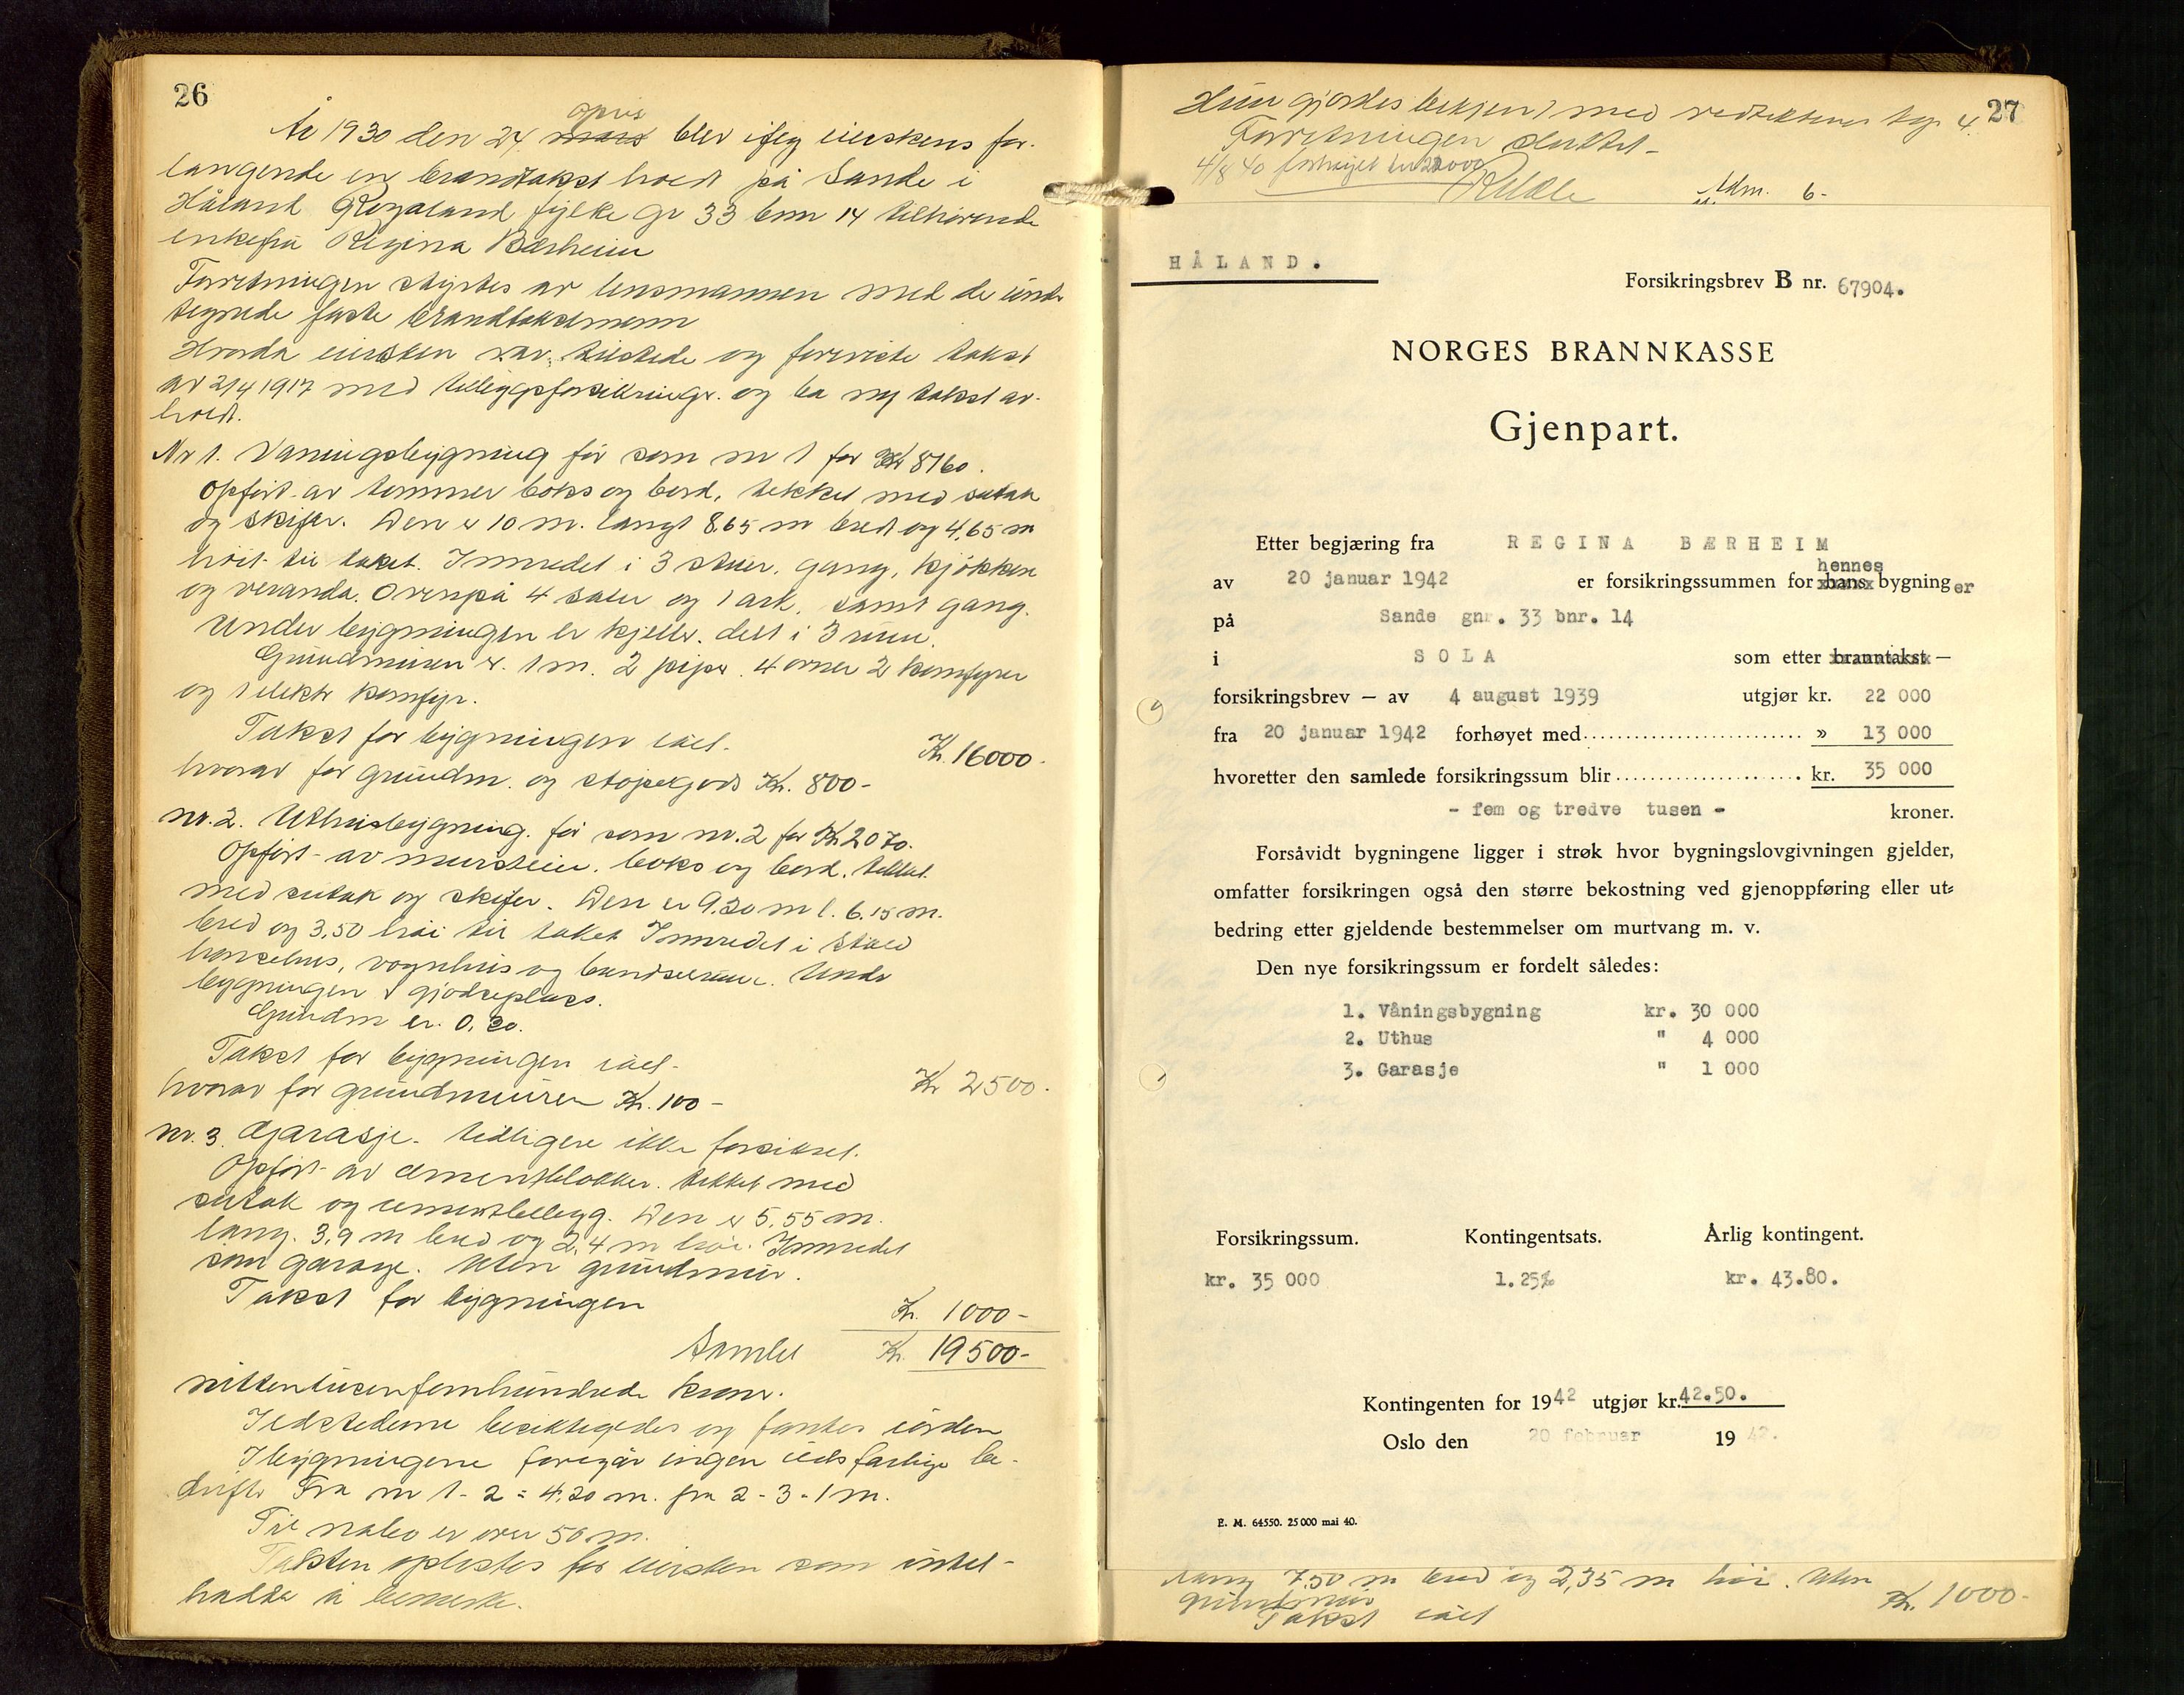 26
opris
År 1930 den 24, mars blev ifølg eierskens for-
langende en brandtakst holdt på Sande i
Håland Rogaland fylke gr 33 brn 14 tilhørende
enkefru Regina Bærheim
Forretningen styrtes av lensmannen med de undr
tegnede faste brandtakstmenn
Hvorda eiersken var tilstede og foreviste takst
av 2/4 1917 med tilleggsforsikringr. og ba ny takst av-
holdt.
Nr 1. Vaningsbygning før som nr 1 for Kr 8160.
Opført av tømmer boks og bord, tekket med sutak
og skifer. Den er 10 m. langt 8,65 m bredt og 4,65 m
høit til taket. Innredet i 3 stuer, gang, kjøkken
og veranda. Ovenpå 4 saler og 1 ark, samt gang.
Under bygningen er kjeller, delt i 3 rum.
Grundmuren er. 1 m. 2 piper. 4 ovner 2 komfyrer
og 1 elektr komfyr.
Takst for bygningen ialt-
Kr. 16000-
hvorav for grundm. og støpegods Kr. 800-
nr. 2. Uthusbygning. før som nr. 2 for Kr 2070.
Opført av murstein, boks og bord, tekket
med sutak og skifer. Den er 9.20 m l. 6.15 m.
bred og 3,50 høi til taket Innredet i stald
hønsehus, vognhus og brendselrum. Undr
bygningen er gjødselplass.
Grundm er. 0,20.
Takst for bygningen ialt-
Kr 2500.
hvorav for grundmuren Kr. 100-
nr. 3. Garasje. tidligere ikke forsikret.
Opført av cementblokker. tekket med
sutak og cementbelegg. Den er 5,55 m.
lang. 3,9 m bred og 2,4 m høi. Innredet
som garage. Uten grundmur.
Takst for bygningen
Kr. 1000-
Samlet Kr. 19500-
nittentusenfemhundrede kroner.
Ildstederne besiktigedes og fantes iorden
I bygningene foregår ingen ildsfarlige be-
drifter Fra nr 1 - 2 = 4,20 m. fra 2 - 3 - 1 m.
Til nabo er over 50 m.
Taksten oplestes for eiersken som intet-
hadde å bemerke.
27
Hun gjordes bekjent med vedtektenes kap 4.
Forretningen sluttet-
4/8 40 forhøiet til 22000
Adm. 6-
HÅLAND.
Forsikringsbrev B nr. 67904.
NORGES BRANNKASSE
Gjenpart.
Etter begjæring fra REGINA BÆRHEIM
hennes
av 20 januar 1942 er forsikringssummen for hans bygninger
på Sande gnr. 33 bnr. 14
i SOLA som etter branntakst —
forsikringsbrev — av 4 august 1939 utgjør kr. 22 000
fra 20 januar 1942 forhøyet med.......................... » 13 000
hvoretter den samlede forsikringssum blir...................... kr. 35 000
- fem og tredve tusen - kroner.
Forsåvidt bygningene ligger i strøk hvor bygningslovgivningen gjelder,
omfatter forsikringen også den større bekostning ved gjenoppføring eller ut=
bedring etter gjeldende bestemmelser om murtvang m. v.
Den nye forsikringssum er fordelt således:
1. Våningsbygning kr. 30 000
2. Uthus " 4 000
3. Garasje " 1 000
Forsikringssum. Kontingentsats. Årlig kontingent.
kr. 35 000 1.25‰ kr. 43.80.
Kontingenten for 1942 utgjør kr. 42.50.
Oslo den 20 februar 1942.
E. M. 64550. 25 000 mai 40.
lang 7,50 m bred og 2,35 m høi. Uten
grundmur
Takst ialt
Kr. 1000-